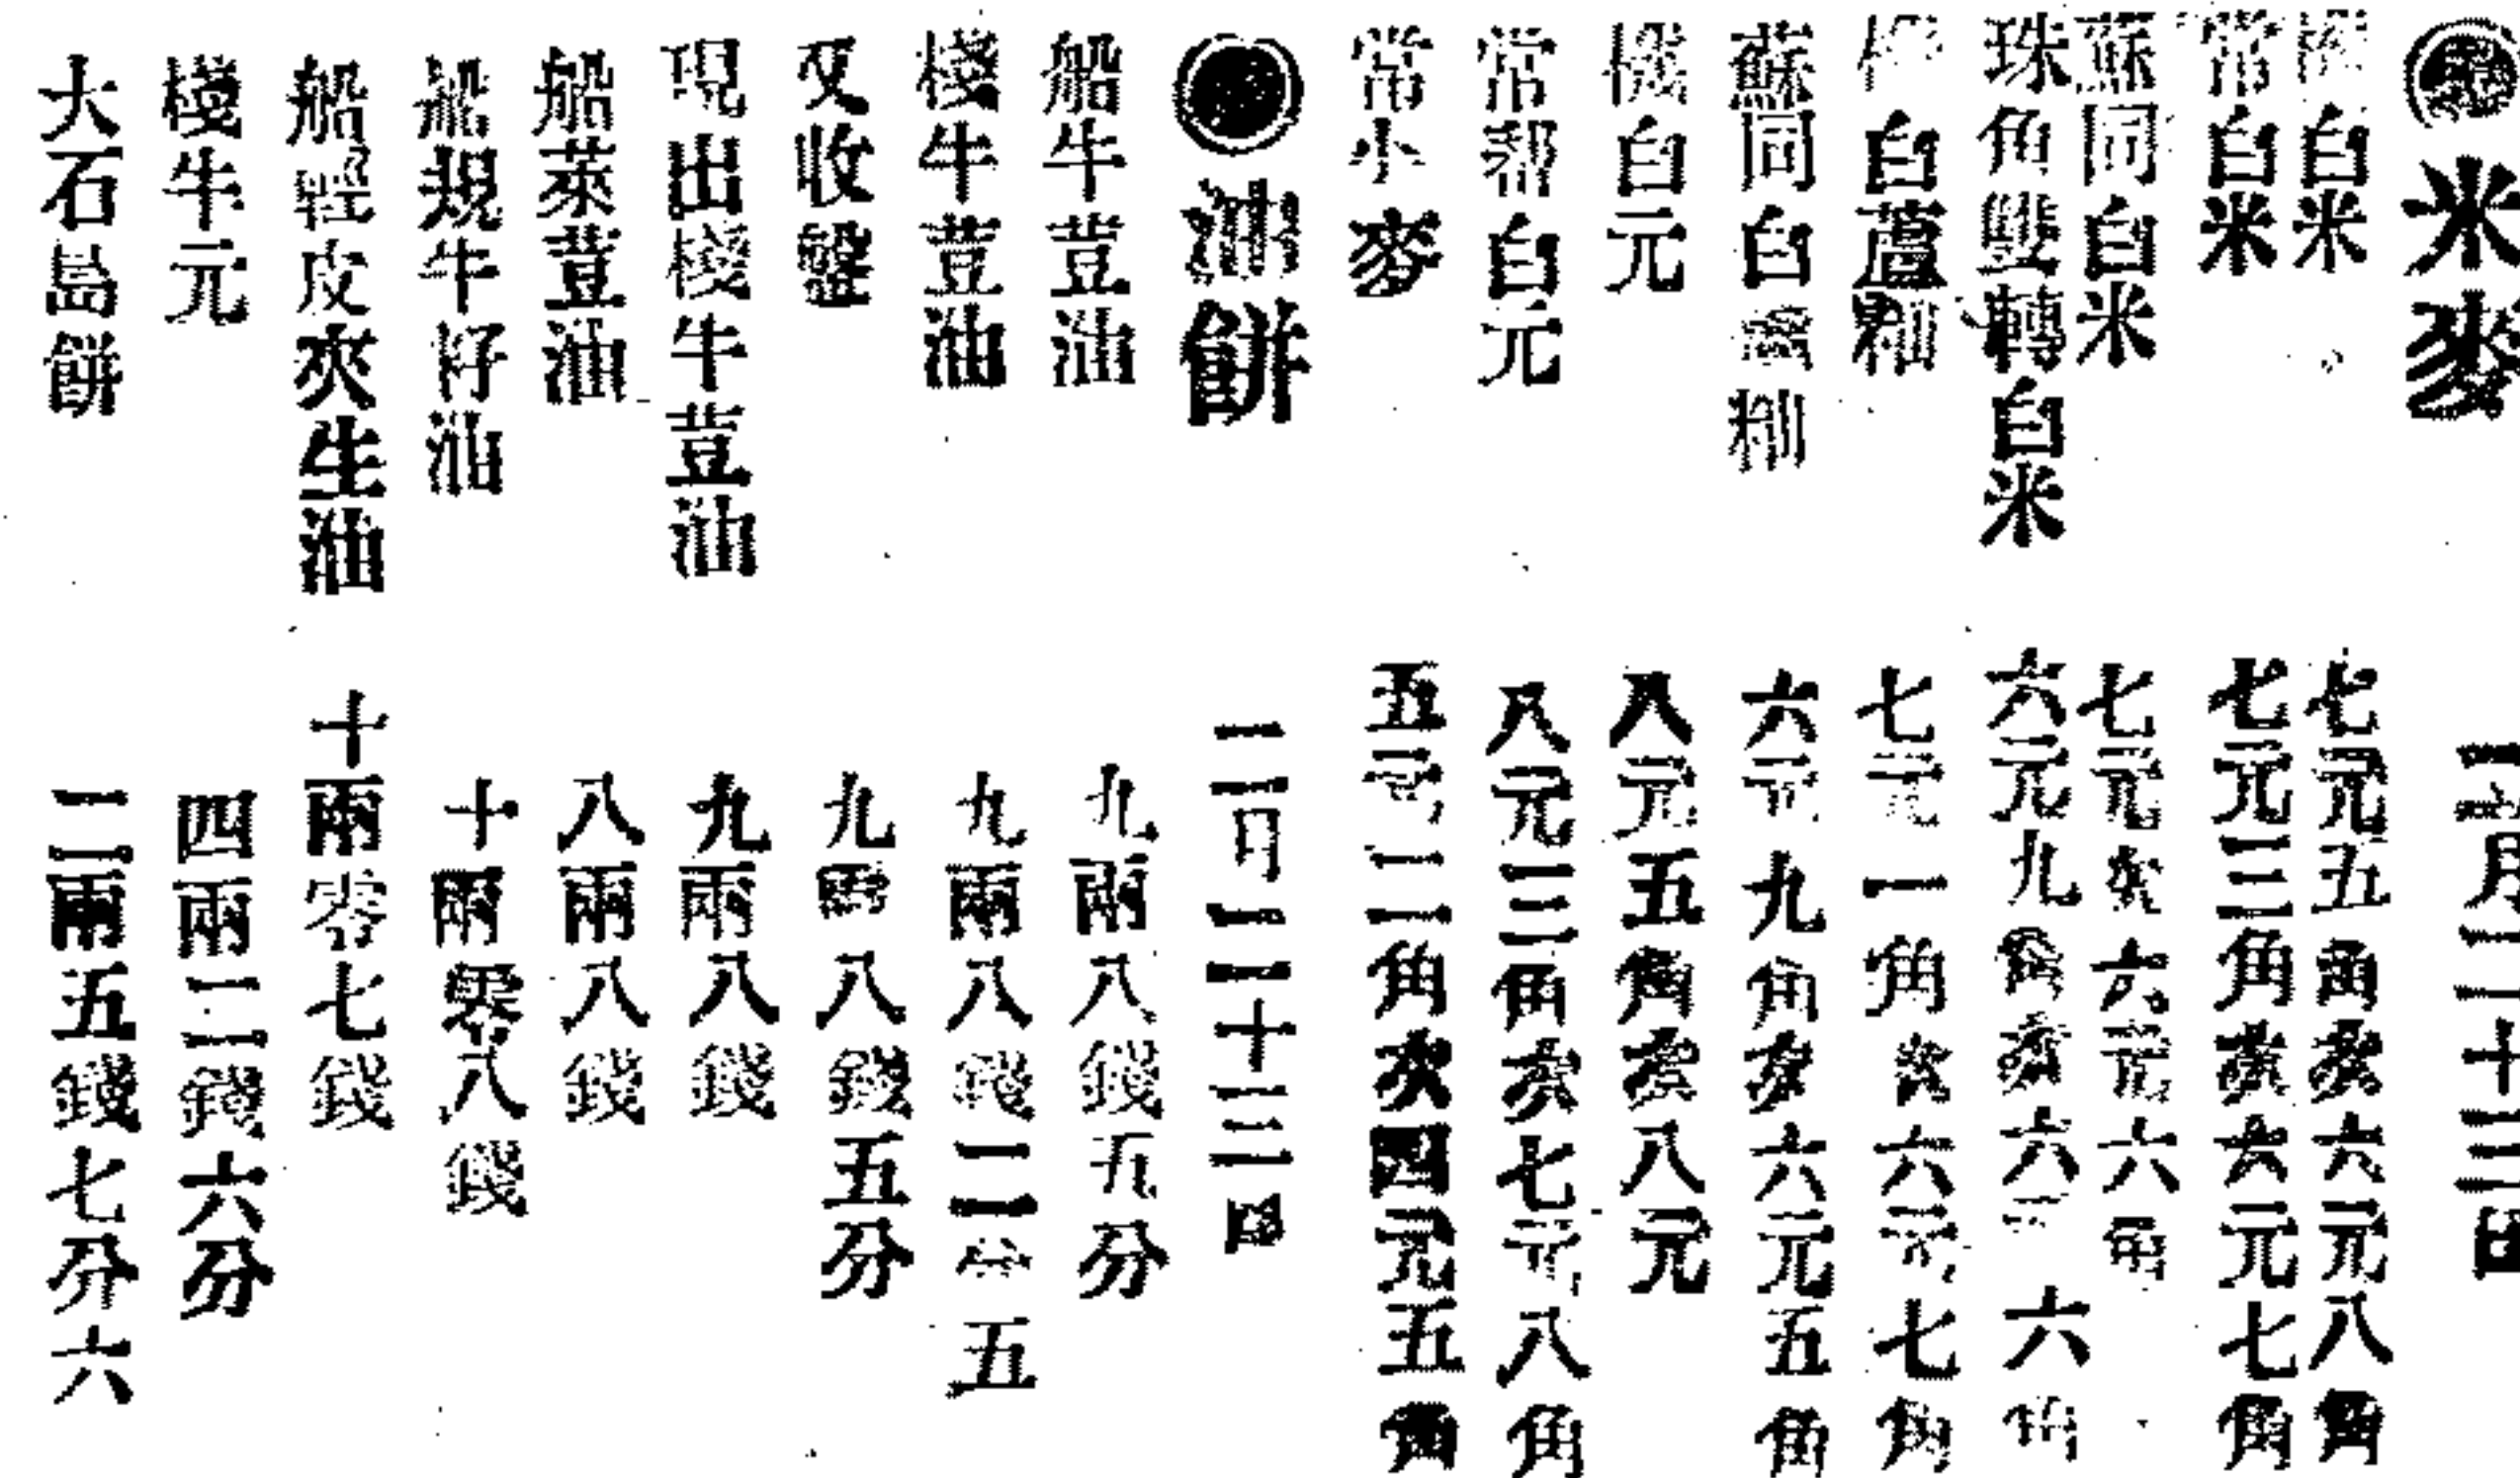 米麥 二月二十三日
白米 七元五角 次六元八角
常白米 七元三角 次六元七角
蘇同白米 七元 次六元六角
珠角雙轉白米 六元九角 次六元六角
白蘆粞 七元一角 次六元七角
蘇同白粞 六元九角 次六元五角
機白元 八元五角 次八元
常郡白元 八元三角 次七元八角
常小麥 五元二角 次四元五角
油餅 二月二十三日
船牛荳油 九兩八錢五分
棧牛荳油 九兩八錢二分五
又收盤 九兩八錢五分
現出棧牛荳油 九兩八錢
船萊荳油 八兩八錢
船規牛籽油 十兩零八錢
船輕皮夾生油 十兩零七錢
棧牛元 四兩二錢六分
大石島餅 二兩五錢七分六